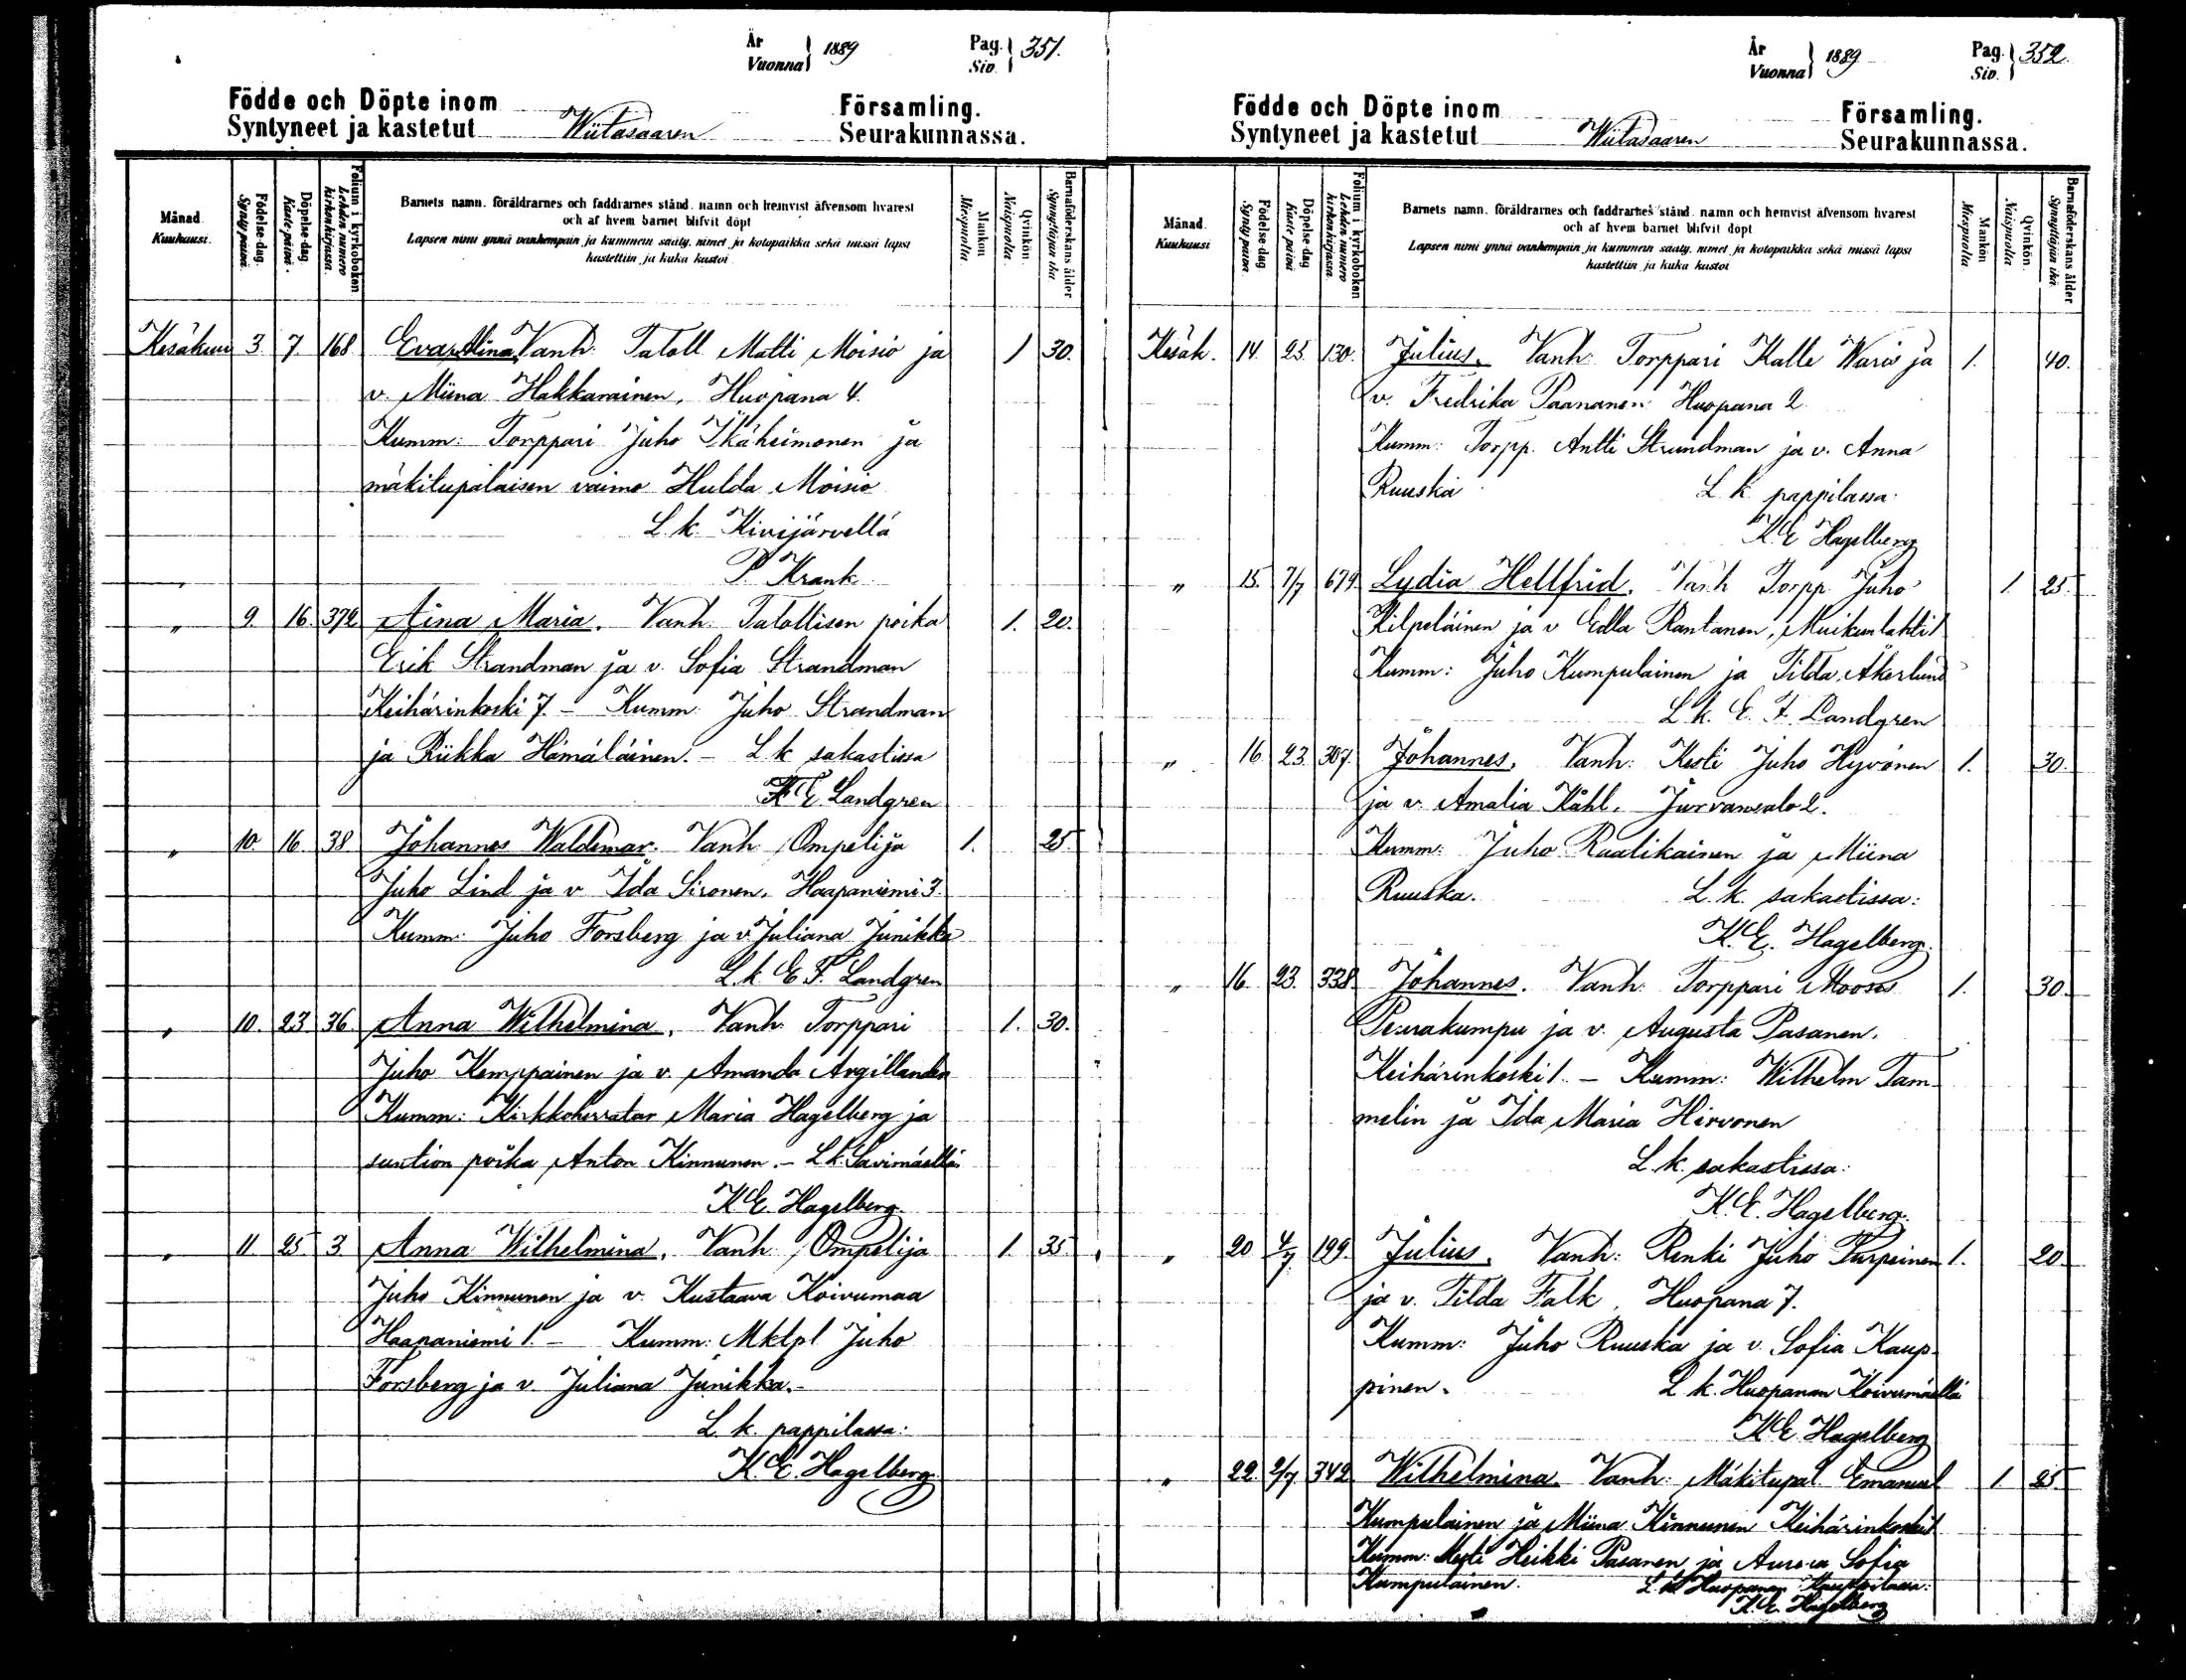 År
Vuonna } 1889
Pag.
Siv. } 351.
Födde och Döpte inom
Syntyneet ja kastetut Wiitasaaren
Församling.
Seurakunnassa.
Månad.
Kuukausi.
Födelse-dag.
Synty-päivä.
Döpelse-dag.
Kaste-päivä.
Folium i kyrkoboken
Lehden numero
kirkonkirjassa.
Barnets namn, föräldrarnes och faddrarnes stånd, namn och hemvist äfvensom hvarest
och af hvem barnet blifvit döpt
Lapsen nimi ynnä vanhempain ja kummein sääty, nimet ja kotopaikka sekä missä lapsi
kastettiin ja kuka kastoi
Mankön
Miespuolia.
Qvinkön.
Naispuolia.
Barnaföderskans ålder
Synnyttäjän ikä
Kesäkuu 3. 7. 168 Eva Stina, Vanh. Taloll. Matti Moisio ja 1 30.
v. Miina Hakkarainen, Huopana 4.
Kumm: Torppari Juho Ikäheimonen ja
mäkitupalaisen vaimo Hulda Moisio
L. k. Kivijärvellä
P. Krank
" 9. 16. 372 Aina Maria. Vanh. Talollisen poika 1. 20.
Erik Strandman ja v. Sofia Strandman
Keihärinkoski 7. – Kumm. Juho Strandman
ja Riikka Hämäläinen. – L. k. sakastissa
Landgren
" 10. 16. 38 Johannes Waldemar. Vanh. Ompelija 1. 25.
Juho Lind ja v. Ida Sironen. Haapaniemi 3.
Kumm: Juho Forsberg ja v. Juliana Junikka
L. k. E. F. Landgren
" 10. 23 36 Anna Wilhelmina. Vanh. Torppari 1. 30.
Juho Kemppainen ja v. Amanda Argillander
Kumm: Kirkkoherratar Maria Hagelberg ja
suntion poika Anton Kinnunen. – L. k. Savimäellä
K E. Hagelberg.
" 11. 25 3 Anna Wilhelmina. Vanh. Ompelija 1. 35.
Juho Kinnunen ja v. Kustaava Koivumaa
Haapaniemi 1. – Kumm: Mktpl Juho
Forsberg ja v. Juliana Junikka. –
L. k. pappilassa:
K. E. Hagelberg.
År
Vuonna } 1889
Pag.
Siv. } 352.
Födde och Döpte inom
Syntyneet ja kastetut Wiitasaaren
Församling.
Seurakunnassa.
Månad.
Kuukausi
Födelse-dag
Synty-päivä
Döpelse-dag
Kaste-päivä
Folium i kyrkoboken
Lehden numero
kirkonkirjassa.
Barnets namn, föräldrarnes och faddrarnes stånd, namn och hemvist äfvensom hvarest
och af hvem barnet blifvit döpt
Lapsen nimi ynnä vanhempain ja kummein sääty, nimet ja kotopaikka sekä missä lapsi
kastettiin ja kuka kastoi
Mankön
Miespuolia
Qvinkön.
Naispuolia
Barnaföderskans ålder
Synnyttäjän ikä
Kesäk. 14. 25. 130. Julius. Vanh. Torppari Kalle Waris ja 1. 40.
v. Fredrika Paananen Huopana 2
Kumm: Torpp. Antti Strandman ja v. Anna
Ruuska L. k. pappilassa:
K. E Hagelberg
" 15. 7/7 679. Lydia Hellfrid. Vanh. Torpp. Juho 1. 25.
Kilpeläinen ja v. Edla Rantanen, Muikunlahti 1
Kumm: Juho Kumpulainen ja Tilda Åkerlund
L. k. E. F. Landgren
" 16 23. 307. Johannes. Vanh: Kesti Juho Hyvönen 1. 30.
ja v. Amalia Kåhl. Jurvansalo 2.
Kumm: Juho Raatikainen ja Miina
Ruuska. L. k. sakastissa:
K. E. Hagelberg.
" 16. 23. 338. Johannes. Vanh. Torppari Mooses 1. 30.
Peurakumpu ja v. Augusta Pasanen.
Keihärinkoski 1. – Kumm: Wilhelm Tam-
melin ja Ida Maria Hirvonen
L. k. sakastissa:
K. E. Hagelberg.
" 20 4/7 199. Julius. Vanh: Renki Juho Turpeinen 1. 20.
ja v. Tilda Falk, Huopana 7.
Kumm: Juho Ruuska ja v. Sofia Kaup-
pinen. L. k. Huopanan Koivumäellä
K. E. Hagelberg
" 22. 2/7 342 Wilhelmina. Vanh: Mäkitupal. Emanuel 1 25.
Kumpulainen ja Miina Kinnunen Keihärinkoski 1
Kumm: Kesti Heikki Pasanen ja Aurora Sofia
Kumpulainen. L. k. Huopanan
K. E. Hagelberg